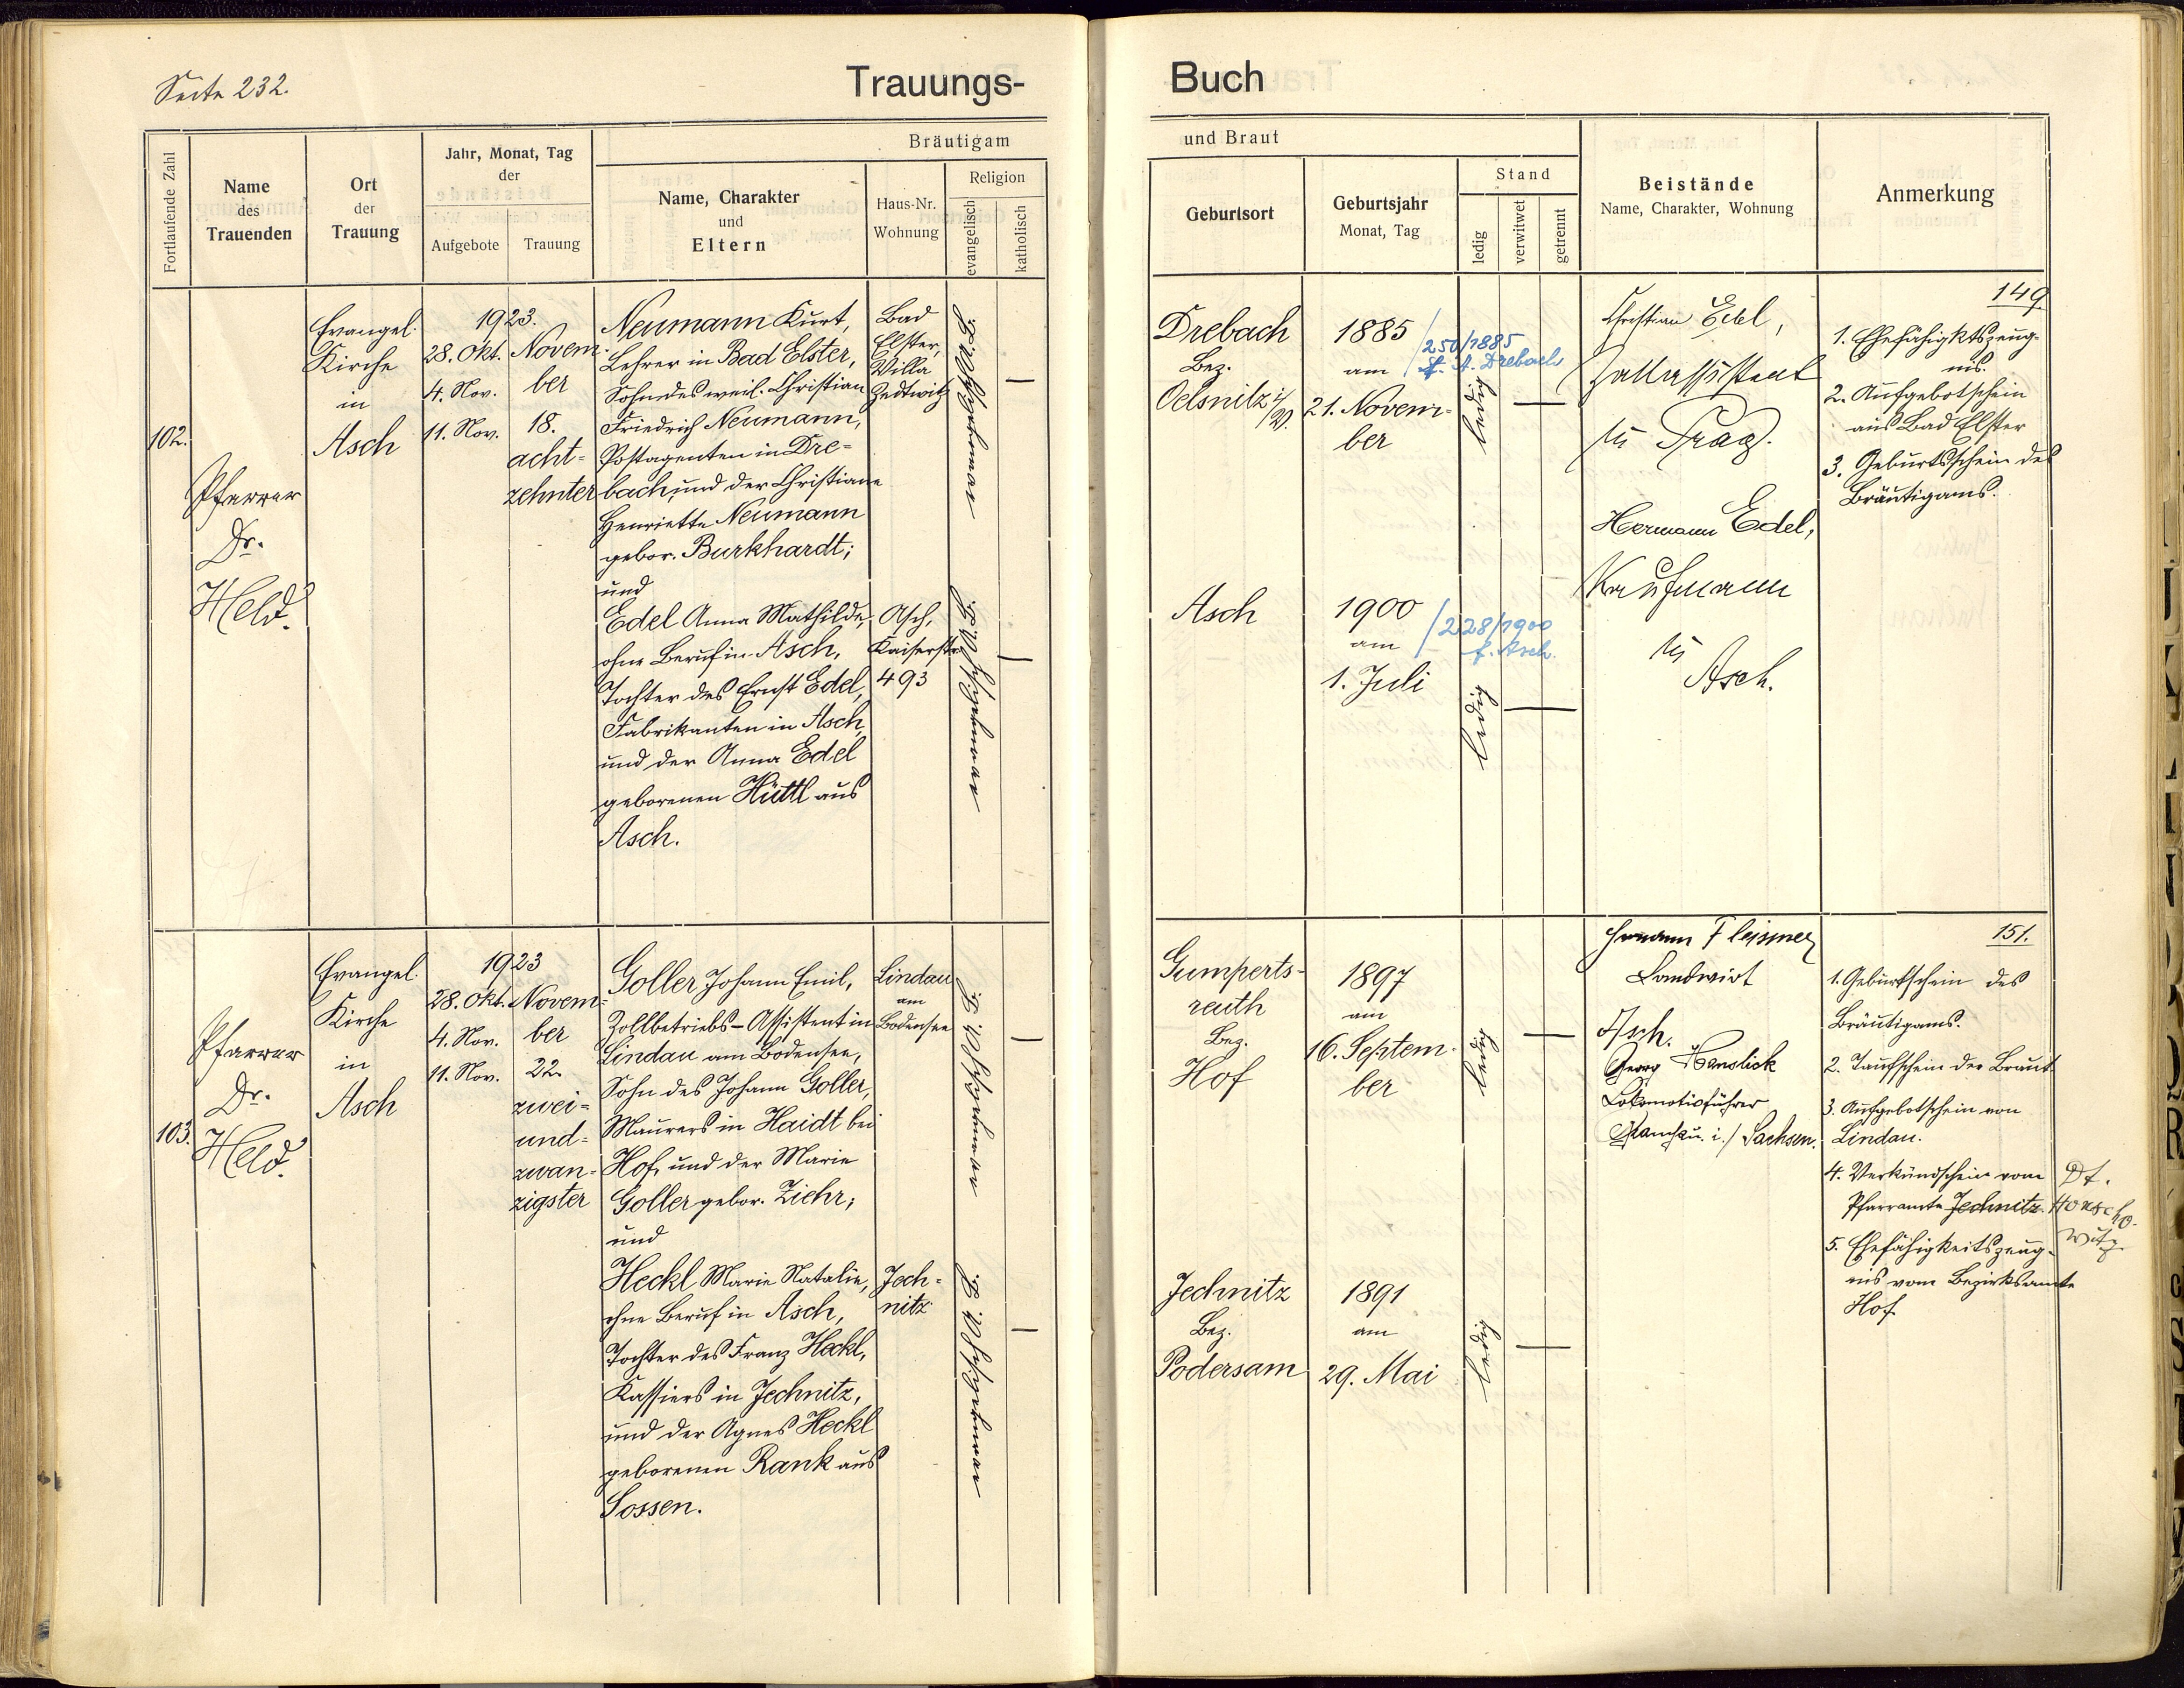 Seite 232.
Trauungs-
Fortlaufende Zahl
Name
des
Trauenden
Ort
der
Trauung
Jahr, Monat, Tag
der
Aufgebote
Trauung
Bräutigam
Name, Charakter
und
Eltern
Haus-Nr.
Wohnung
Religion
evangelisch
katholisch
102.
Pfarrer
Dr.
Held.
Evangel.
Kirche
in
Asch
1923.
28. Okt.
4. Nov.
11. Nov.
Novem-
ber
18.
acht-
zehnter
Neumann Kurt,
Lehrer in Bad Elster,
Sohn des weil. Christian
Friedrich Neumann,
Postagenten in Dre-
bach, und der Christiane
Henriette Neumann
gebor. Burkhardt;
und
Edel Anna Mathilde,
ohne Beruf in Asch,
Tochter des Ernst Edel,
Fabrikanten in Asch,
und der Anna Edel
geborenen Hüttl aus
Asch.
Bad
Elster,
Villa
Zedtwitz
Asch,
Kaiserstr.
493
103.
Pfarrer
Dr.
Held.
Evangel.
Kirche
in
Asch
1923
28. Okt.
4. Nov.
11. Nov.
Novem-
ber
22.
zwei-
und-
zwan-
zigster
Goller Johann Emil,
Zollbetriebs-Assistent in
Lindau am Bodensee,
Sohn des Johann Goller,
Maurers in Haidt bei
Hof, und der Marie
Goller gebor. Ziehr;
und
Heckl Marie Natalie,
ohne Beruf in Asch,
Tochter des Franz Heckl,
Kassiers in Jechnitz,
und der Agnes Heckl
geborenen Rank aus
Sossen.
Lindau
am
Bodensee
Jech-
nitz
Buch
und Braut
Geburtsort
Geburtsjahr
Monat, Tag
Stand
ledig
verwitwet
getrennt
Beistände
Name, Charakter, Wohnung
Anmerkung
Drebach
Bez.
Oelsnitz i/
V.
1885
am
21. Novem-
ber
250/1885
Drebach
ledig
Christian Edel,
in Prag.
Hermann Edel,
Kaufmann
in
Asch.
149
1. Ehefähigktszeug-
nis.
2. Aufgebotschein
aus Bad Elster
3. Geburtsschein des
Bräutigams.
Asch
1900
am
1. Juli
228/1900
f. Asch.
ledig
Gumperts-
reuth
Bez.
Hof
1897
am
16. Septem-
ber
ledig
Hermann Fleissner
Landwirt
Asch.
Georg
Lokomotivführer
i./ Sachsen.
151.
1. Geburtschein des
Bräutigams.
2. Taufschein der Braut
3. Aufgebotschein von
Lindau.
4. Verkündschein vom
Pfarramte Jechnitz.
5. Ehefähigkeitszeug-
nis vom Bezirksamte
Hof.
Jechnitz
Bez.
Podersam
1891
am
29. Mai
ledig